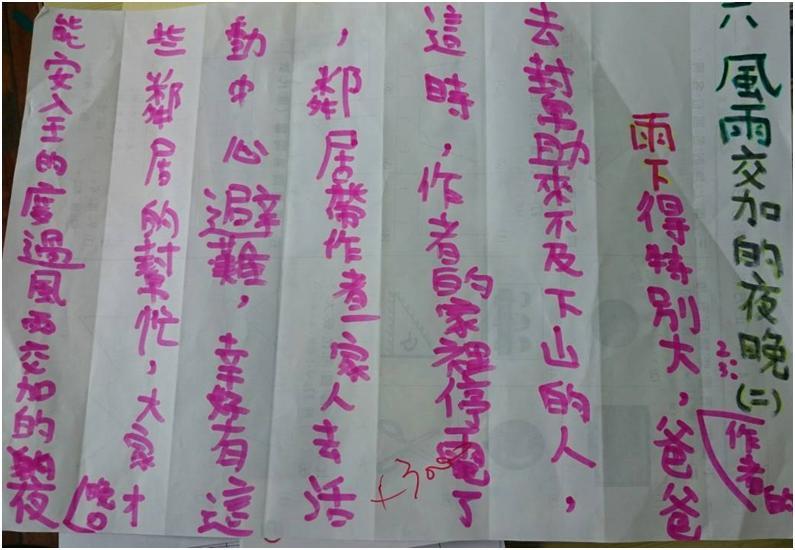 六 風雨交加的夜晚(二)
2. 3.
作者的
雨下得特別大，爸爸
去幫助來不及下山的人，
這時，作者的家裡停電了
+300
，鄰居帶作者一家人去活
動中心避難，幸好有這
些鄰居的幫忙，大家才
能安全的度過風雨交加的夜
晚。